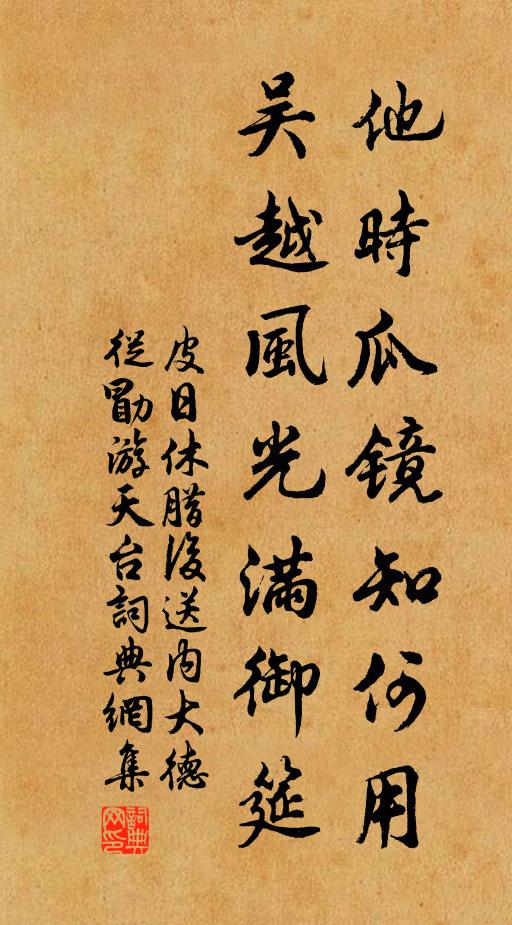 他時瓜鏡知何用
吳越風光滿御筵
皮日休腊後送內大德
從勖游天台詞典網集
詞典網印